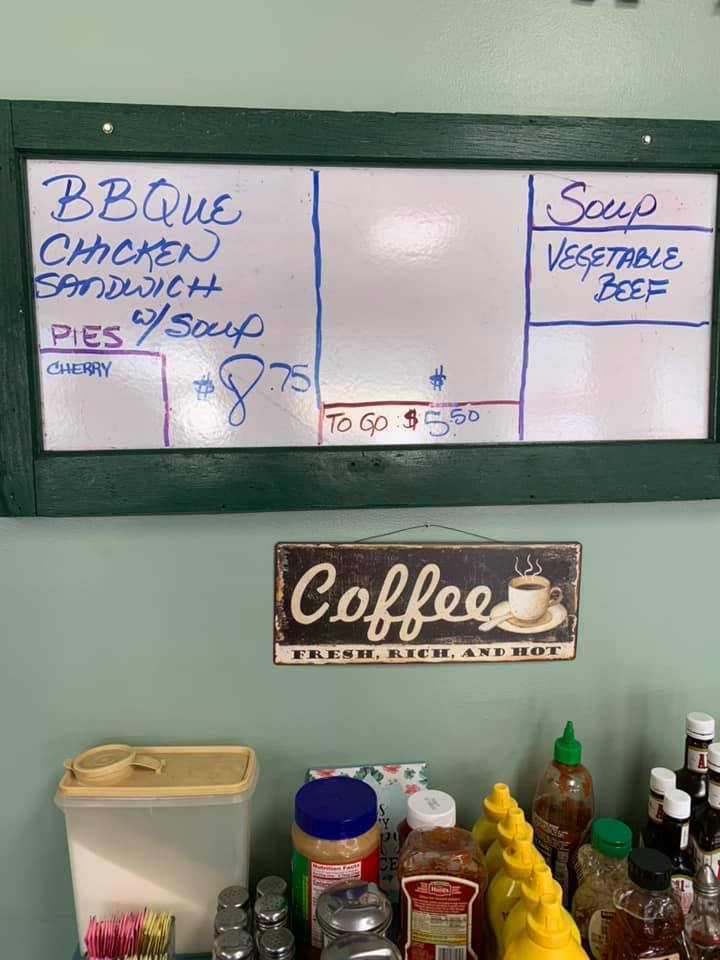 BBQUE
CHICKEN
SANDWICH
W/ SOUP
PIES
CHERRY
$8.75
$
TO GO: $5.50
SOUP
VEGETABLE
BEEF
Coffee
FRESH, RICH, AND HOT
Nutrition Facts
Hunt's